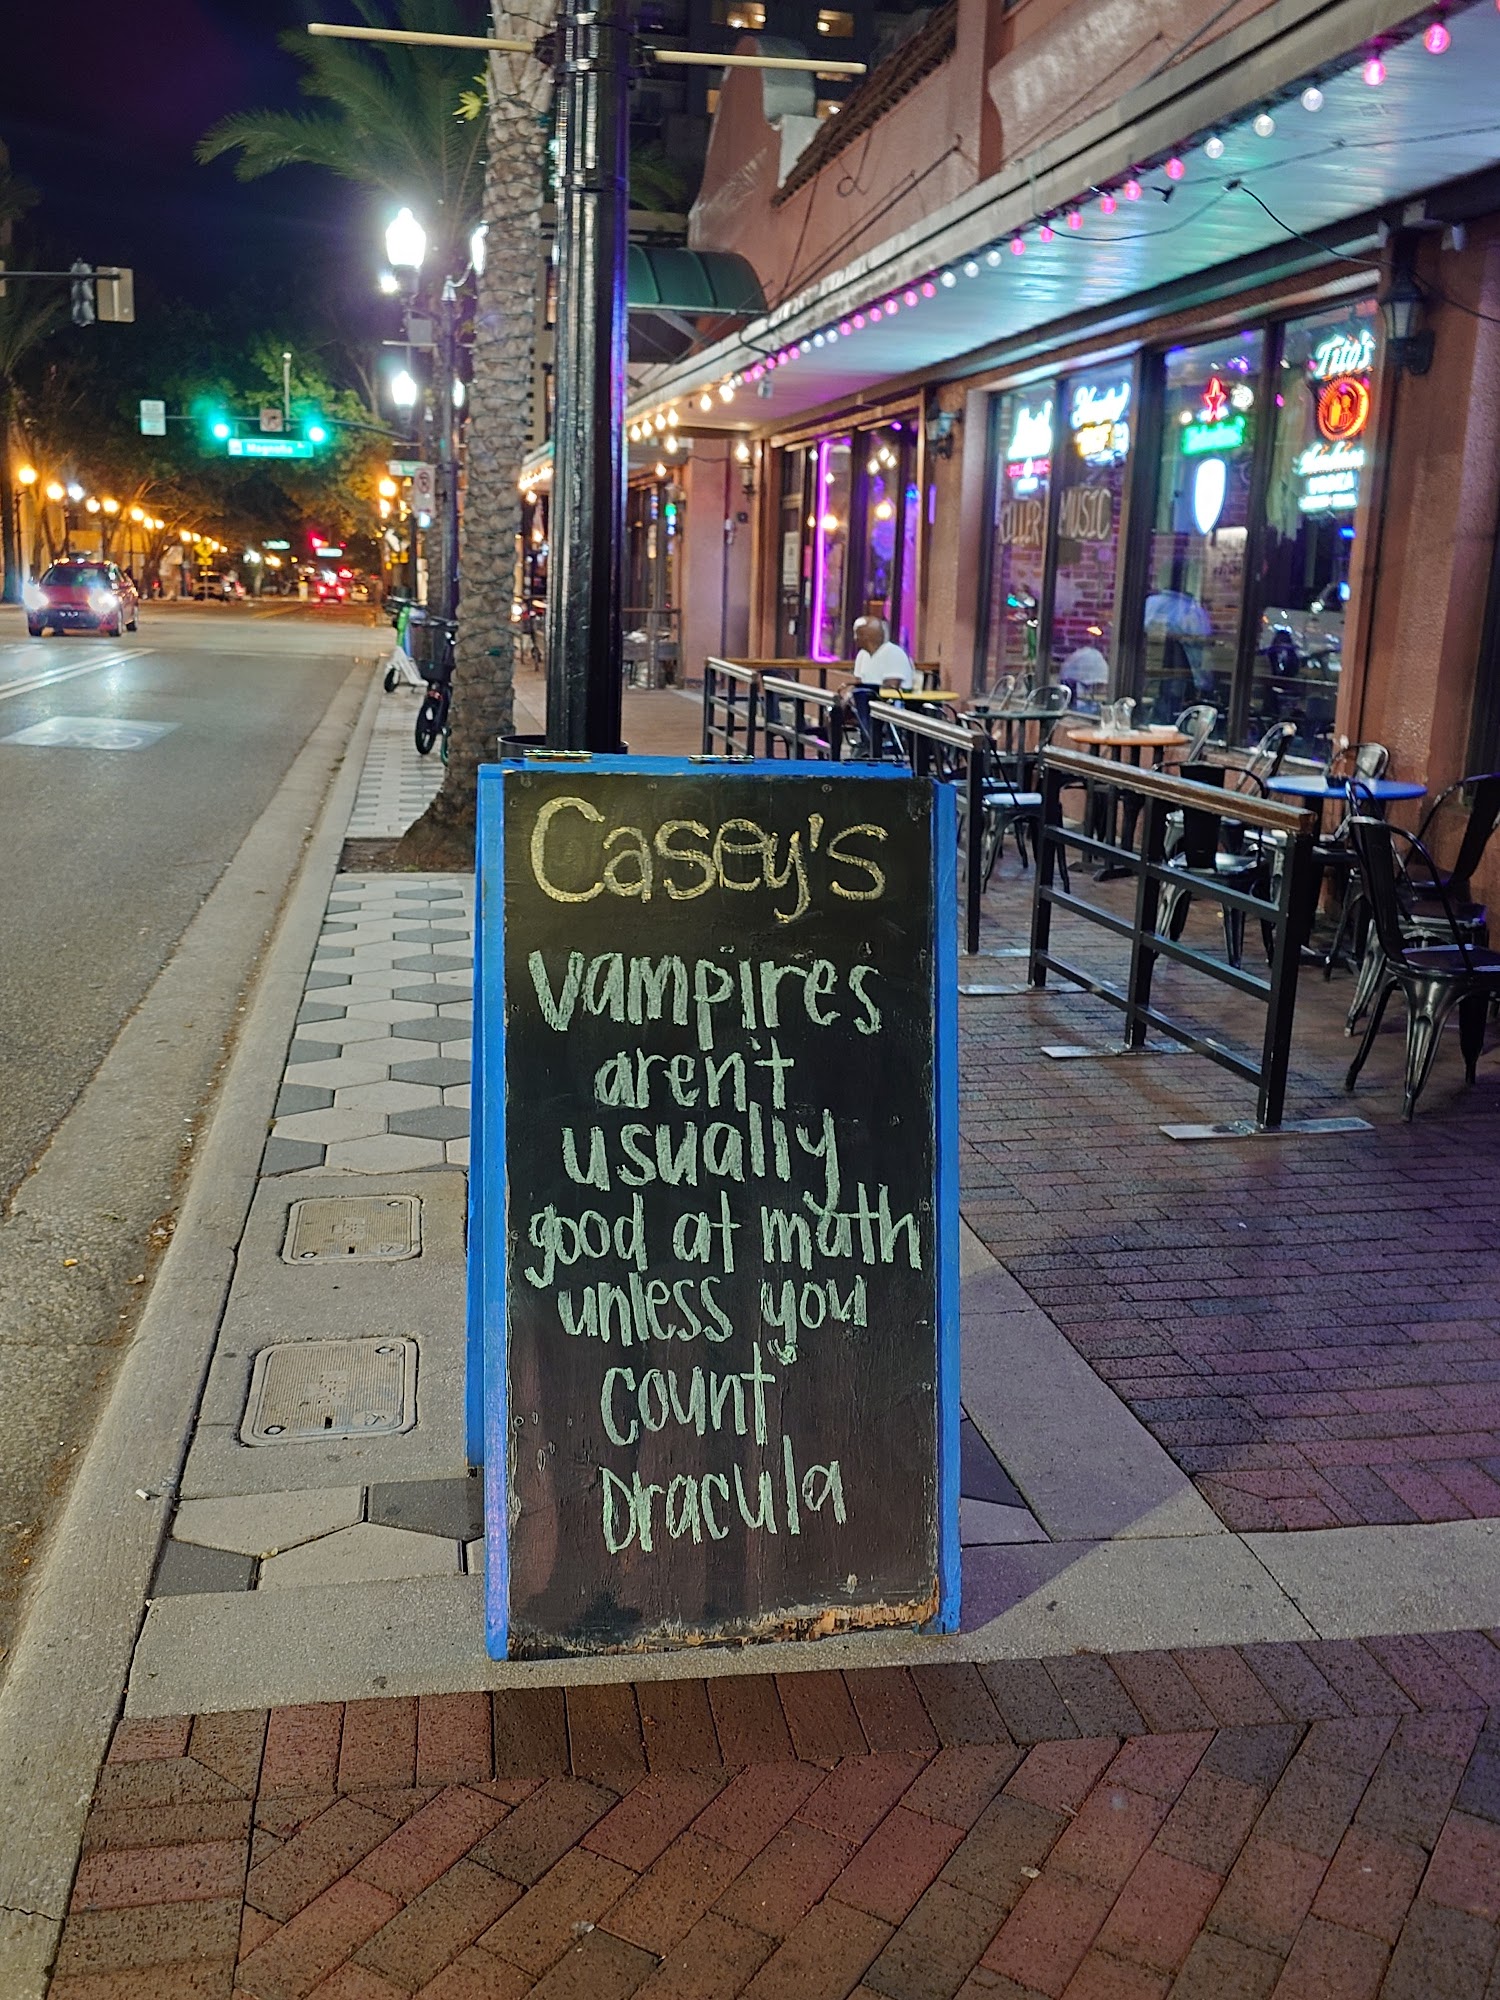 Magnolia
Tito's
KILLER MUSIC
Casey's
Vampires
aren't
usually
good at math
unless you
count
Dracula